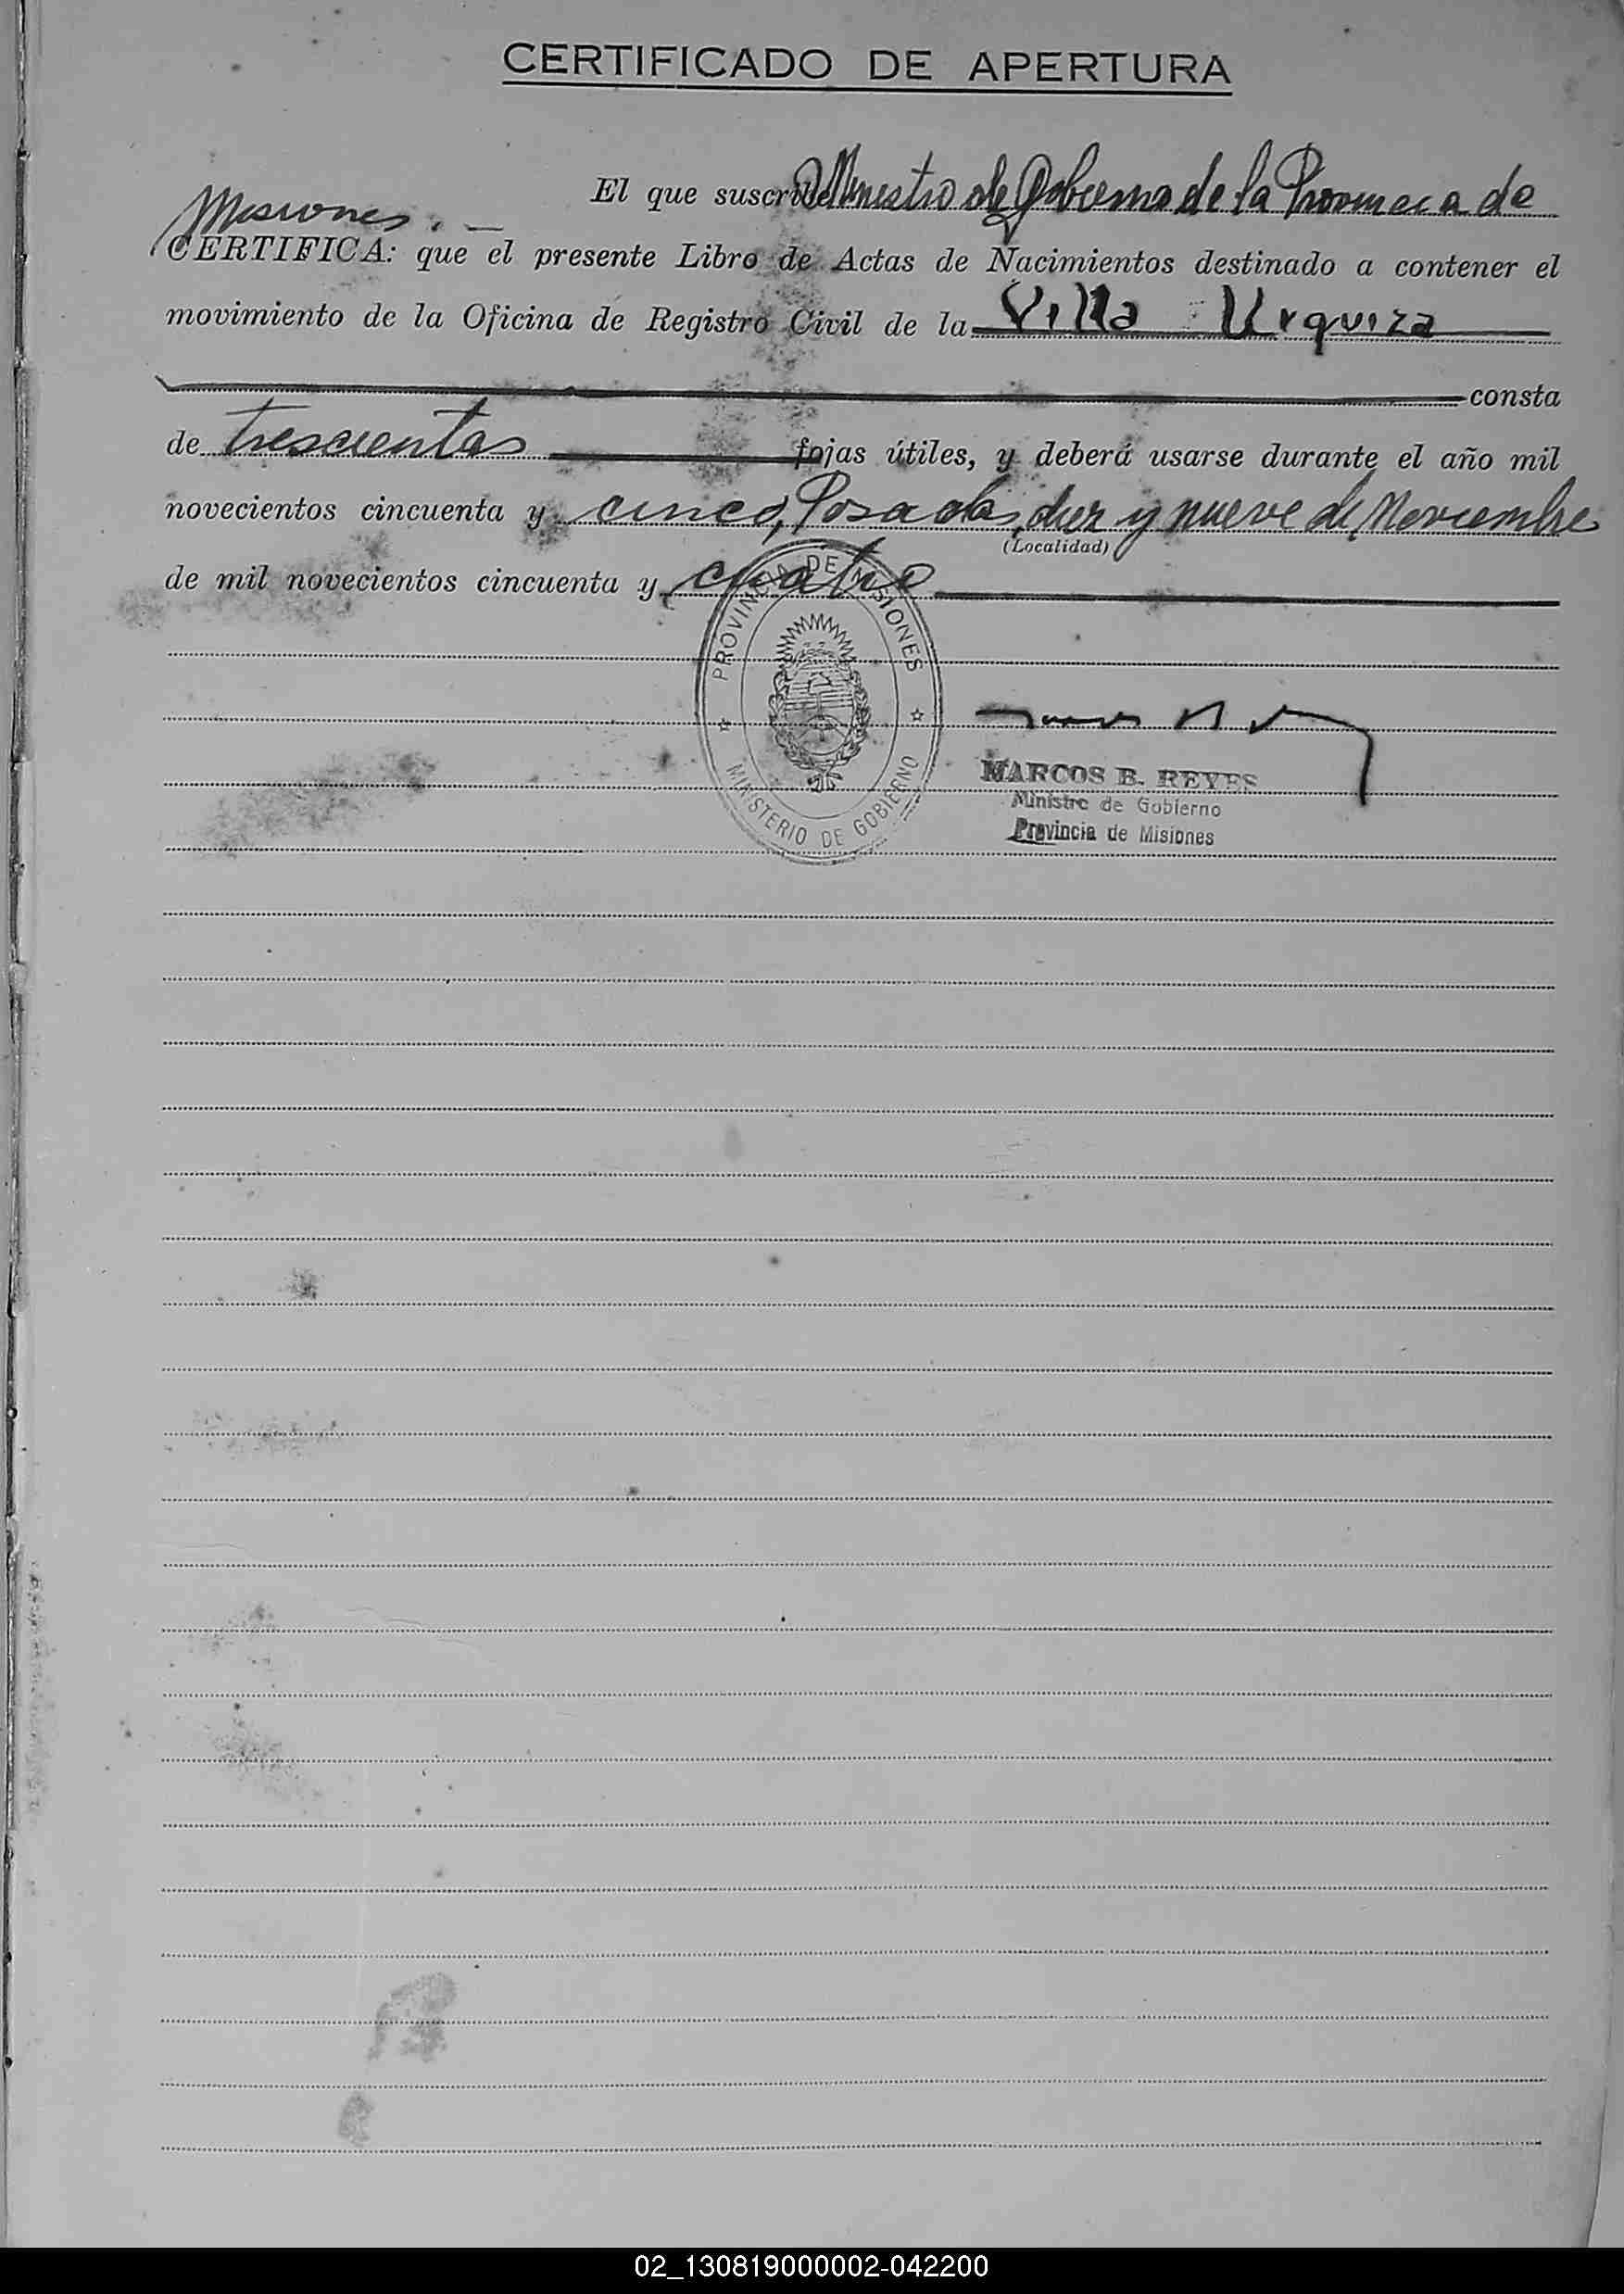 CERTIFICADO DE APERTURA
El que suscribe Ministro de Gobierno de la Provincia de
Misiones. —
CERTIFICA: que el presente Libro de Actas de Nacimientos destinado a contener el
movimiento de la Oficina de Registro Civil de la Villa Urquiza
consta
de trescientas fojas útiles, y deberá usarse durante el año mil
novecientos cincuenta y cinco, Posadas, diez y nueve de Noviembre
(Localidad)
de mil novecientos cincuenta y cuatro
PROVINCIA DE MISIONES
MINISTERIO DE GOBIERNO
MARCOS B. REYES
Ministro de Gobierno
Provincia de Misiones
02_130819000002-042200